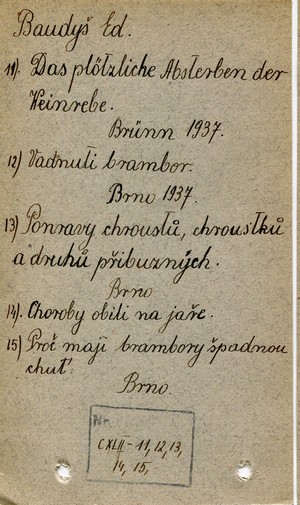 Baudyš Ed.
11). Das plötzliche Absterben der
Weinrebe.
Brünn 1937.
12) Vadnutí brambor.
Brno 1937.
13) Ponravy chroustů, chroustků
a druhů příbuzných.
Brno
14). Choroby obilí na jaře.
15) Proč mají brambory špadnou
chuť
Brno.
Nr.
CXLII - 11, 12, 13,
14, 15,